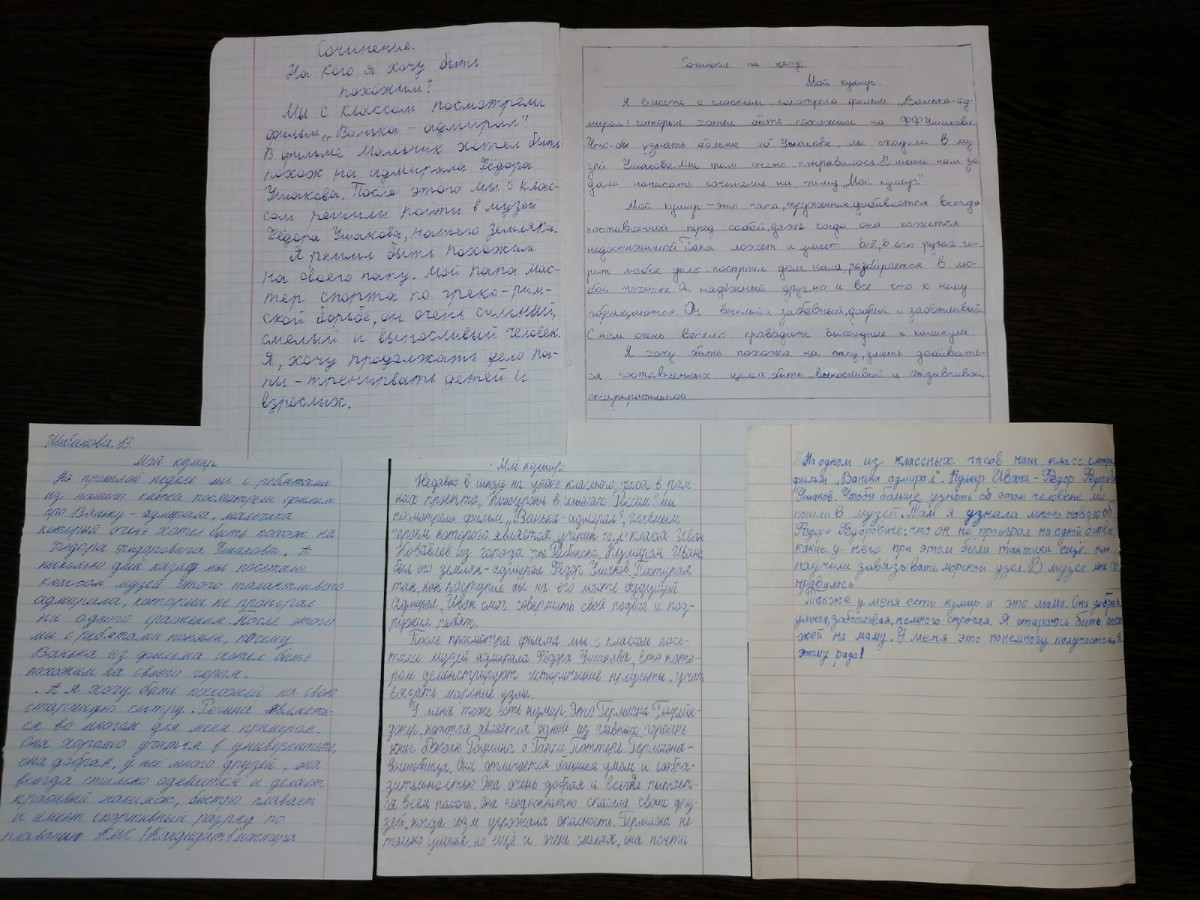 Сочинение.
На кого я хочу быть
похожим?
Мы с классом посмотрели
фильм „Ванька-адмирал".
В фильме мальчик хотел быть
похож на адмирала Фёдора
Ушакова. После этого мы с клас-
сом решили пойти в музей
Фёдора Ушакова, нашего земляка.
Я решил быть похожим
на своего папу. Мой папа мас-
тер спорта по греко-рим-
ской борьбе, он очень сильный,
смелый и выносливый человек.
Я, хочу продолжать дело па-
пы-тренировать детей и
взрослых.
Сочинение на тему:
Мой кумир.
Я вместе с классом смотрела фильм „Ванька-ад-
мирал" который хотел быть похожим на ФФУшакова.
Что-бы узнать больше об Ушакове, мы сходили в му-
зей Ушакова. Мне там очень понравилось. В школе нам за
дали написать сочинение на тему „Мой кумир".
Мой кумир-это папа, труженик, добивается всегда
поставленной перед собой, даже когда она кажется
недостижимой. Папа может и умеет всё, в его руках го-
рит любое дело: построил дом, разбирается в лю-
бой технике. Он надёжный друг, и все кто к нему
обращаются. Он весёлый и забавный, добрый и заботливый.
С ним очень весело проводить выходные и каникулы.
Я хочу быть похожа на папу, уметь добивать-
ся поставленных целей быть выносливой и
Шабанова. В.
Мой кумир
На прошлой неделе мы с ребятами
из нашего класса посмотрели фильм
про Ваньку-адмирала, мальчика
который очень хотел быть похож на
Фёдора Фёдоровича Ушакова. А
несколько дней назад мы посетили
классом музей этого талантливого
адмирала, который не проиграл
ни одного сражения. После этого
мы с ребятами поняли, почему
Ванька из фильма хотел быть
похожим на своего героя.
А я хочу быть похожей на свою
старшую сестру. Полина являеть-
ся во многом для меня примером.
Она хорошо учится в университете,
она добрая, у неё много друзей, она
всегда стильно одевается и делает
красивый макияж, быстро плавает
и имеет спортивный разряд по
плаванию КМС (кандидат в мастера
Мой кумир
Недавно в школе на уроке классного часа в рам-
ках проекта, „Киноуроки в школах России" мы
посмотрели фильм „Ванька-адмирал", главным
героем которого является ученик класса Иван
Ковалёв из города Рыбинска. Кумиром Ивана
был его земляк-адмирал Фёдор Ушаков. Поступая
так, как поступил бы на его месте будущий
адмирал, Иван смог совершить свой подвиг и под-
держал ребят.
После просмотра фильма мы с классом посе-
тили музей адмирала Фёдора Ушакова, в кото-
ром демонстрируют исторические предметы, учат
вязать морские узлы.
У меня тоже есть кумир. Это Гермиона Грейн-
джер, которая является одной из главных героинь
книг Джоан Роулинг о Гарри Поттере. Гермиона-
волшебница. Она отличается большим умом и сообра-
зительностью. Она очень добрая и всегда пытает-
ся всем помочь. Она неоднократно спасала своих дру-
зей, когда им угрожала опасность. Гермиона не
только умная, но ещё и очень смелая, она почти
На одном из классных часов наш класс смотрел
фильм „Ванька адмирал". Кумир Ивана-Фёдор Фёдорович
Ушаков. Чтобы больше узнать об этом человеке мы
пошли в музей. Там я узнала много нового об
Фёдоре Фёдоровиче: что он не проиграл ни одной битвы,
какие у него при этом были тактики ещё нас
научили завязывать морской узел. В музее мне по-
нравилось.
Также у меня есть кумир и это мама. Она добрая,
умная, заботливая, немного строгая. Я стараюсь быть похо-
жей на маму. У меня это понемногу получается, я
этому рада!